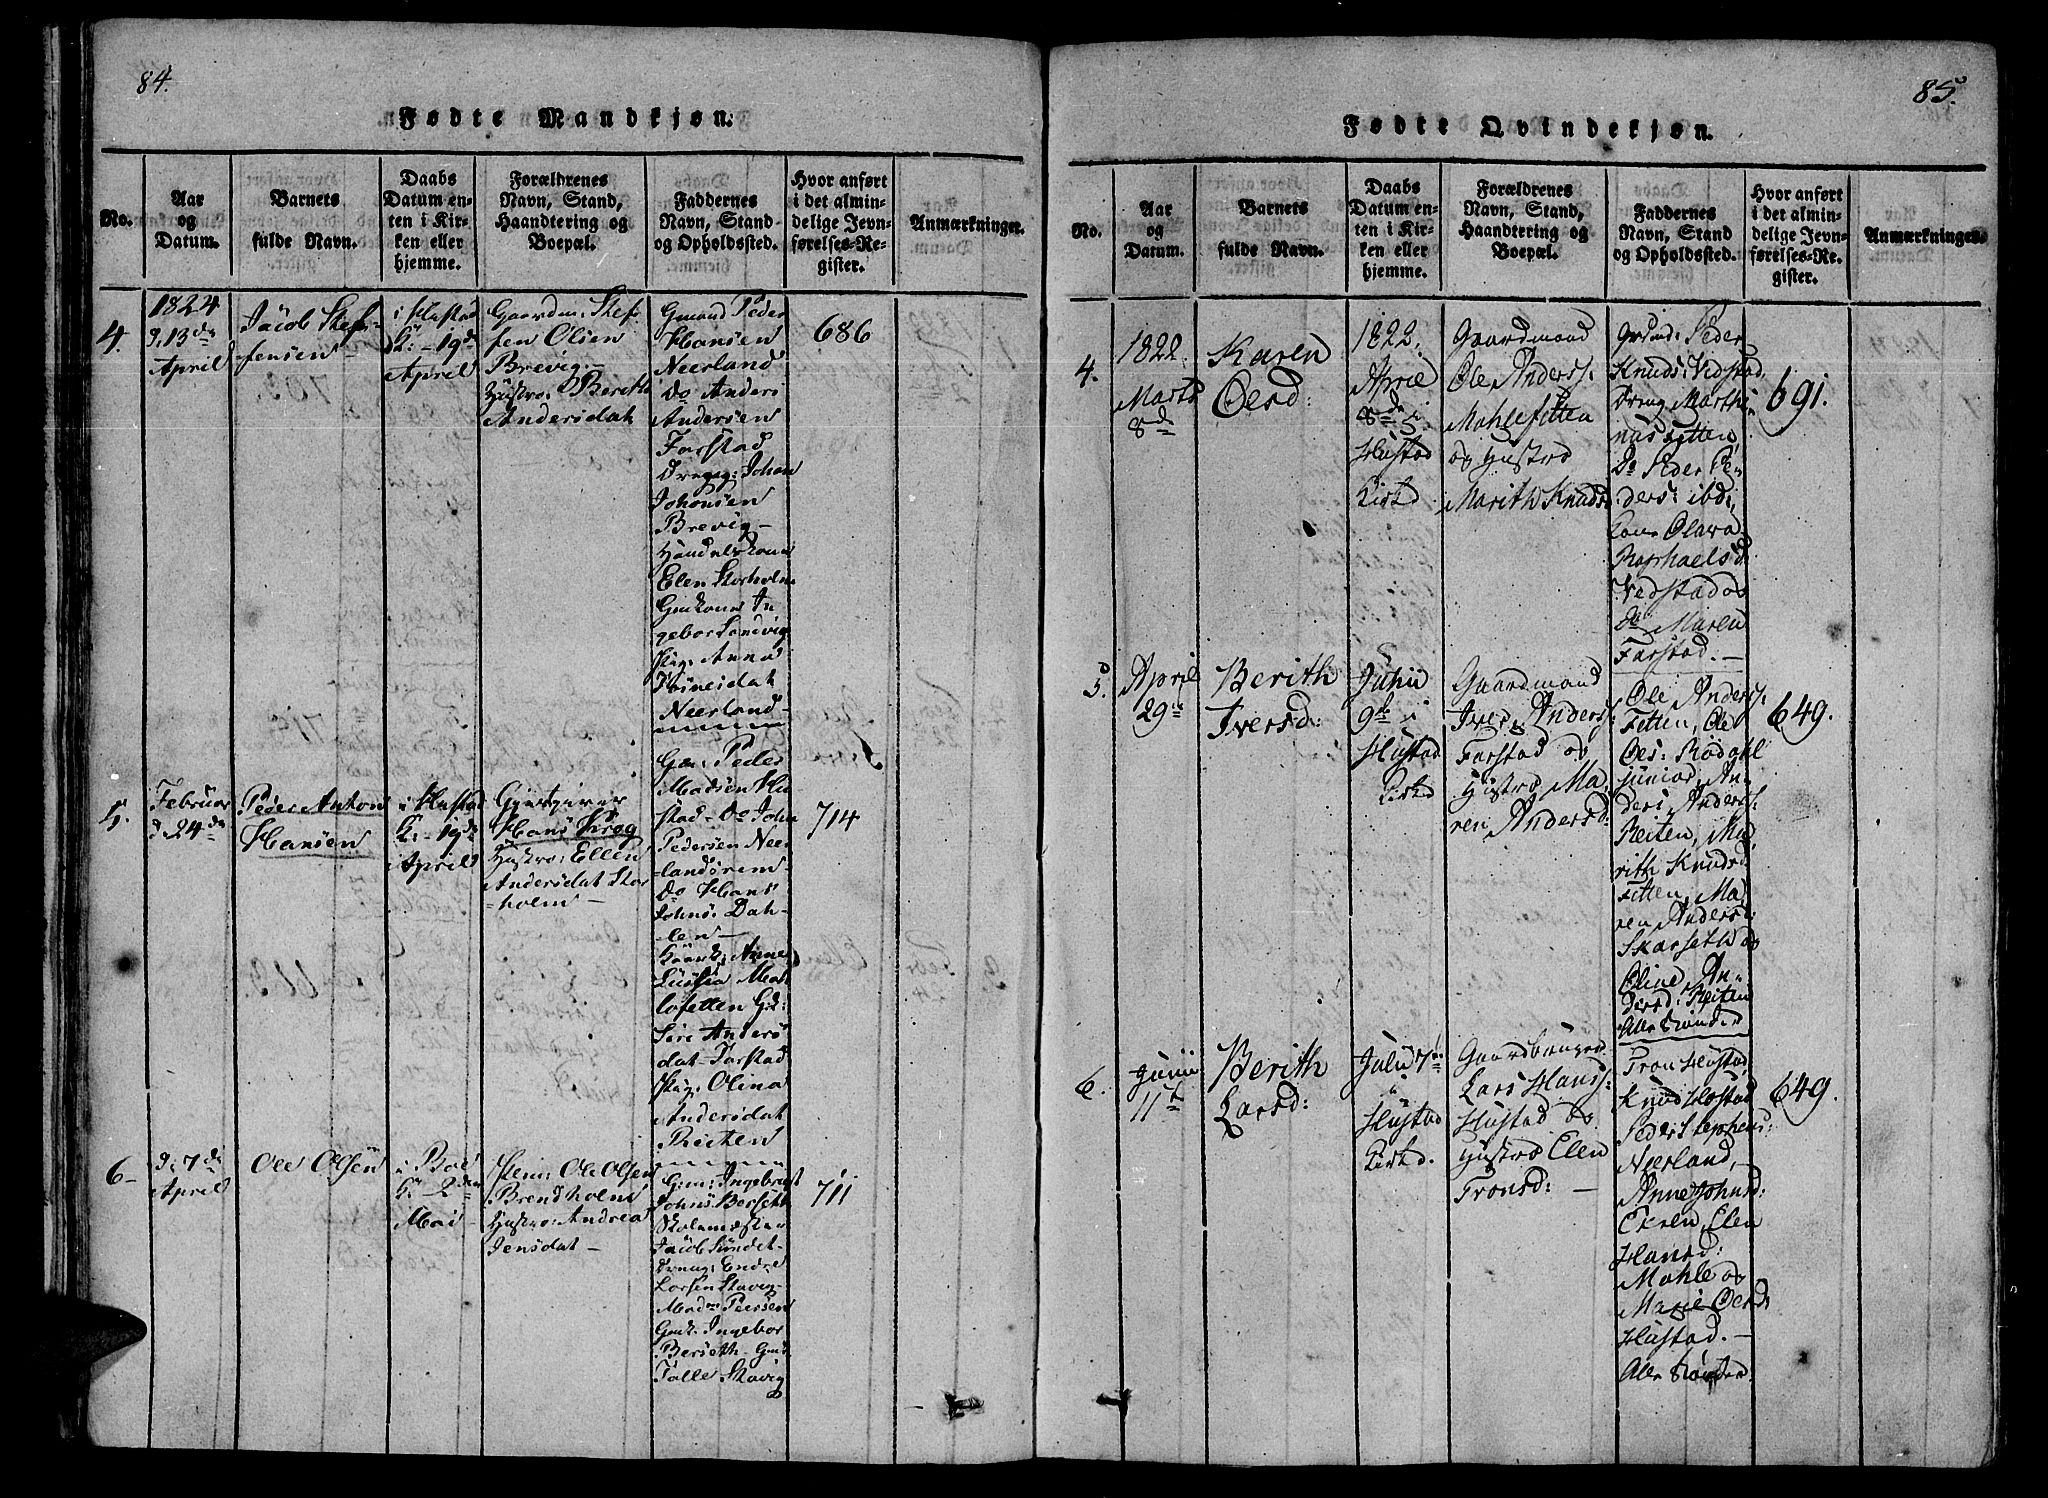 84.
Fødte Mandkjøn.
No.
Aar
og
Datum.
Barnets
fulde Navn.
Daabs
Datum en-
ten i Kir-
ken eller
hjemme.
Forældrenes
Navn, Stand,
Haandtering og
Boepæl.
Faddernes
Navn, Stand
og Opholdssted.
Hvor anført
i det almin-
delige Jevn-
førelses-Re-
gister.
Anmærkninger.
4.
1824
d. 13de
April
Jacob Stef-
fensen
i Hustad
K: 19de
April
Gaardm: Stef
fen Olsen
Brevig
Hustro: Berith
Andersdat
Gmand Peder
Hansen
Neerland
Do Anders
Andersen
Farstad
Dreng: Johan
Johansen
Brevig
Handelskone
Elen Storholm
Gmkone In
gebor Sandvig
Pig: Anna
Neerland
686
5.
Februar
d. 24de
Peder Anton
Hansen
i Hustad
K: 19de
April
Gjestgiver
Hans Krog
Hustro: Ellen
Andersdat Stor
holm
Gm: Peder
Madsen Hu
stad - Do John
Pedersen Neer
landsrem
Do Hans
Johns: Dah-
len
Anne
Lussia Mah
lefetten Gd:
Siri Anders
dat Farstad
Pig: Olina
Andersdat
Reiten
714
6
d. 7de
April
Ole Olsen
i Boe
K: 2den
Mai
Ole Olsen
Brendholm
Hustro: Andrea
Jensdat
Gm: Ingebrigt
Johns Berseth
Skolemester
Jacob Sundet
Dreng: Endre
Larsen Stavig
Madm Peersen
Gmk. Ingebor
Berseth Gm
Talle Stavig
711
85.
Fødte Qvindekjøn.
No.
Aar
og
Datum.
Barnets
fulde Navn.
Daabs
Datum en-
ten i Kir-
ken eller
hjemme.
Forældrenes
Navn, Stand,
Haandtering og
Boepæl.
Faddernes
Navn, Stand
og Opholdssted.
Hvor anført
i det almin-
delige Jevn-
førelses-Re-
gister.
Anmærkninger.
4.
1822.
Marts
8de
Karen
Olesd:
1822.
April
8de i
Hustad
Kirke
Gaardmand
Ole Anderss:
Mahlefetten
og Hustroe
Marith Knudsd
Grmd: Peder
Knuds: Vidstad,
Dreng Marthi-
nus Fetten,
Do Peder Pe-
ders: ibd:,
Kone Olava
Raphaelsd
Vedstad og
do Maren
Farstad.
691.
5.
April
29de
Berith
Iversd:
Junii
9de i
Hustad
Kirke
Gaardmand
Iver Anderss:
Farstad og
Hustroe Ma-
ren Andersd:
Ole Anderss:
Fetten, Ole
Oles: Rødahl
junior, An-
ders Anderss:
Reiten, Ma-
rith Knudsd
Fetten, Ma-
ren Andersd:
Skarseth og
Oline An-
dersd: Reiten
Alle Bønder
649.
6.
Junii
11te
Berith
Larsd:
Julii 7de
i
Hustad
Kirke.
Gaardbruger
Lars Hanss:
Hustad og
Hustroe Elen
Tronsd:
Tron Hustad,
Knud Hustad
Peder Stephens:
Nærland,
Anne Johnsd:
Ekren, Elen
Hansd:
Mahle og
Marie Olesd:
Hustad.
Alle Bønder
649.